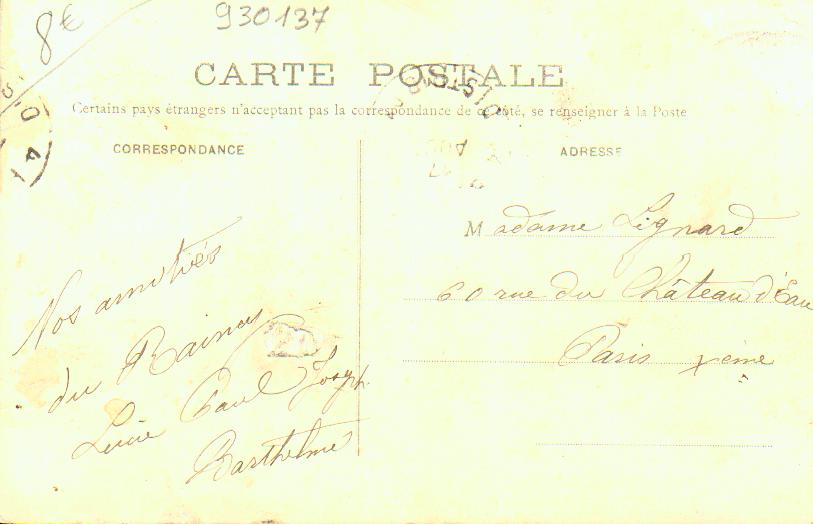 8€
930137
CARTE POSTALE
Certains pays étrangers n'acceptant pas la correspondance de ce côté, se renseigner à la Poste
CORRESPONDANCE
Nos amitiés
du Raincy
Lucie Paul Joseph
Barthelme
ADRESSE
Madame Lignard
60 rue du Château d'Eau
Paris xème